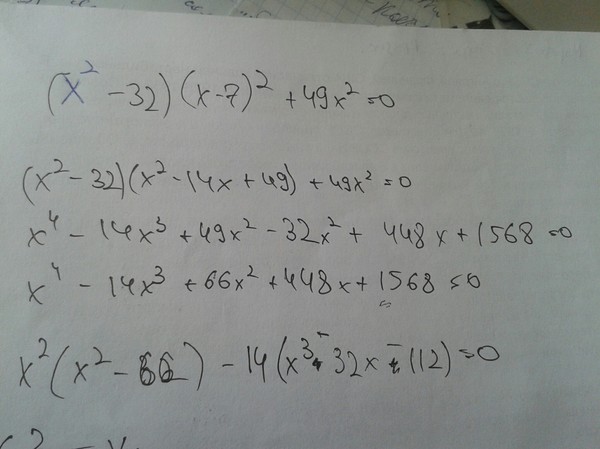 (x² - 32)(x - 7)² + 49x² = 0
(x² - 32)(x² - 14x + 49) + 49x² = 0
x⁴ - 14x³ + 49x² - 32x² + 448x + 1568 = 0
x⁴ - 14x³ + 66x² + 448x + 1568 = 0
x²(x² - 66) - 14(x³ - 32x - 112) = 0